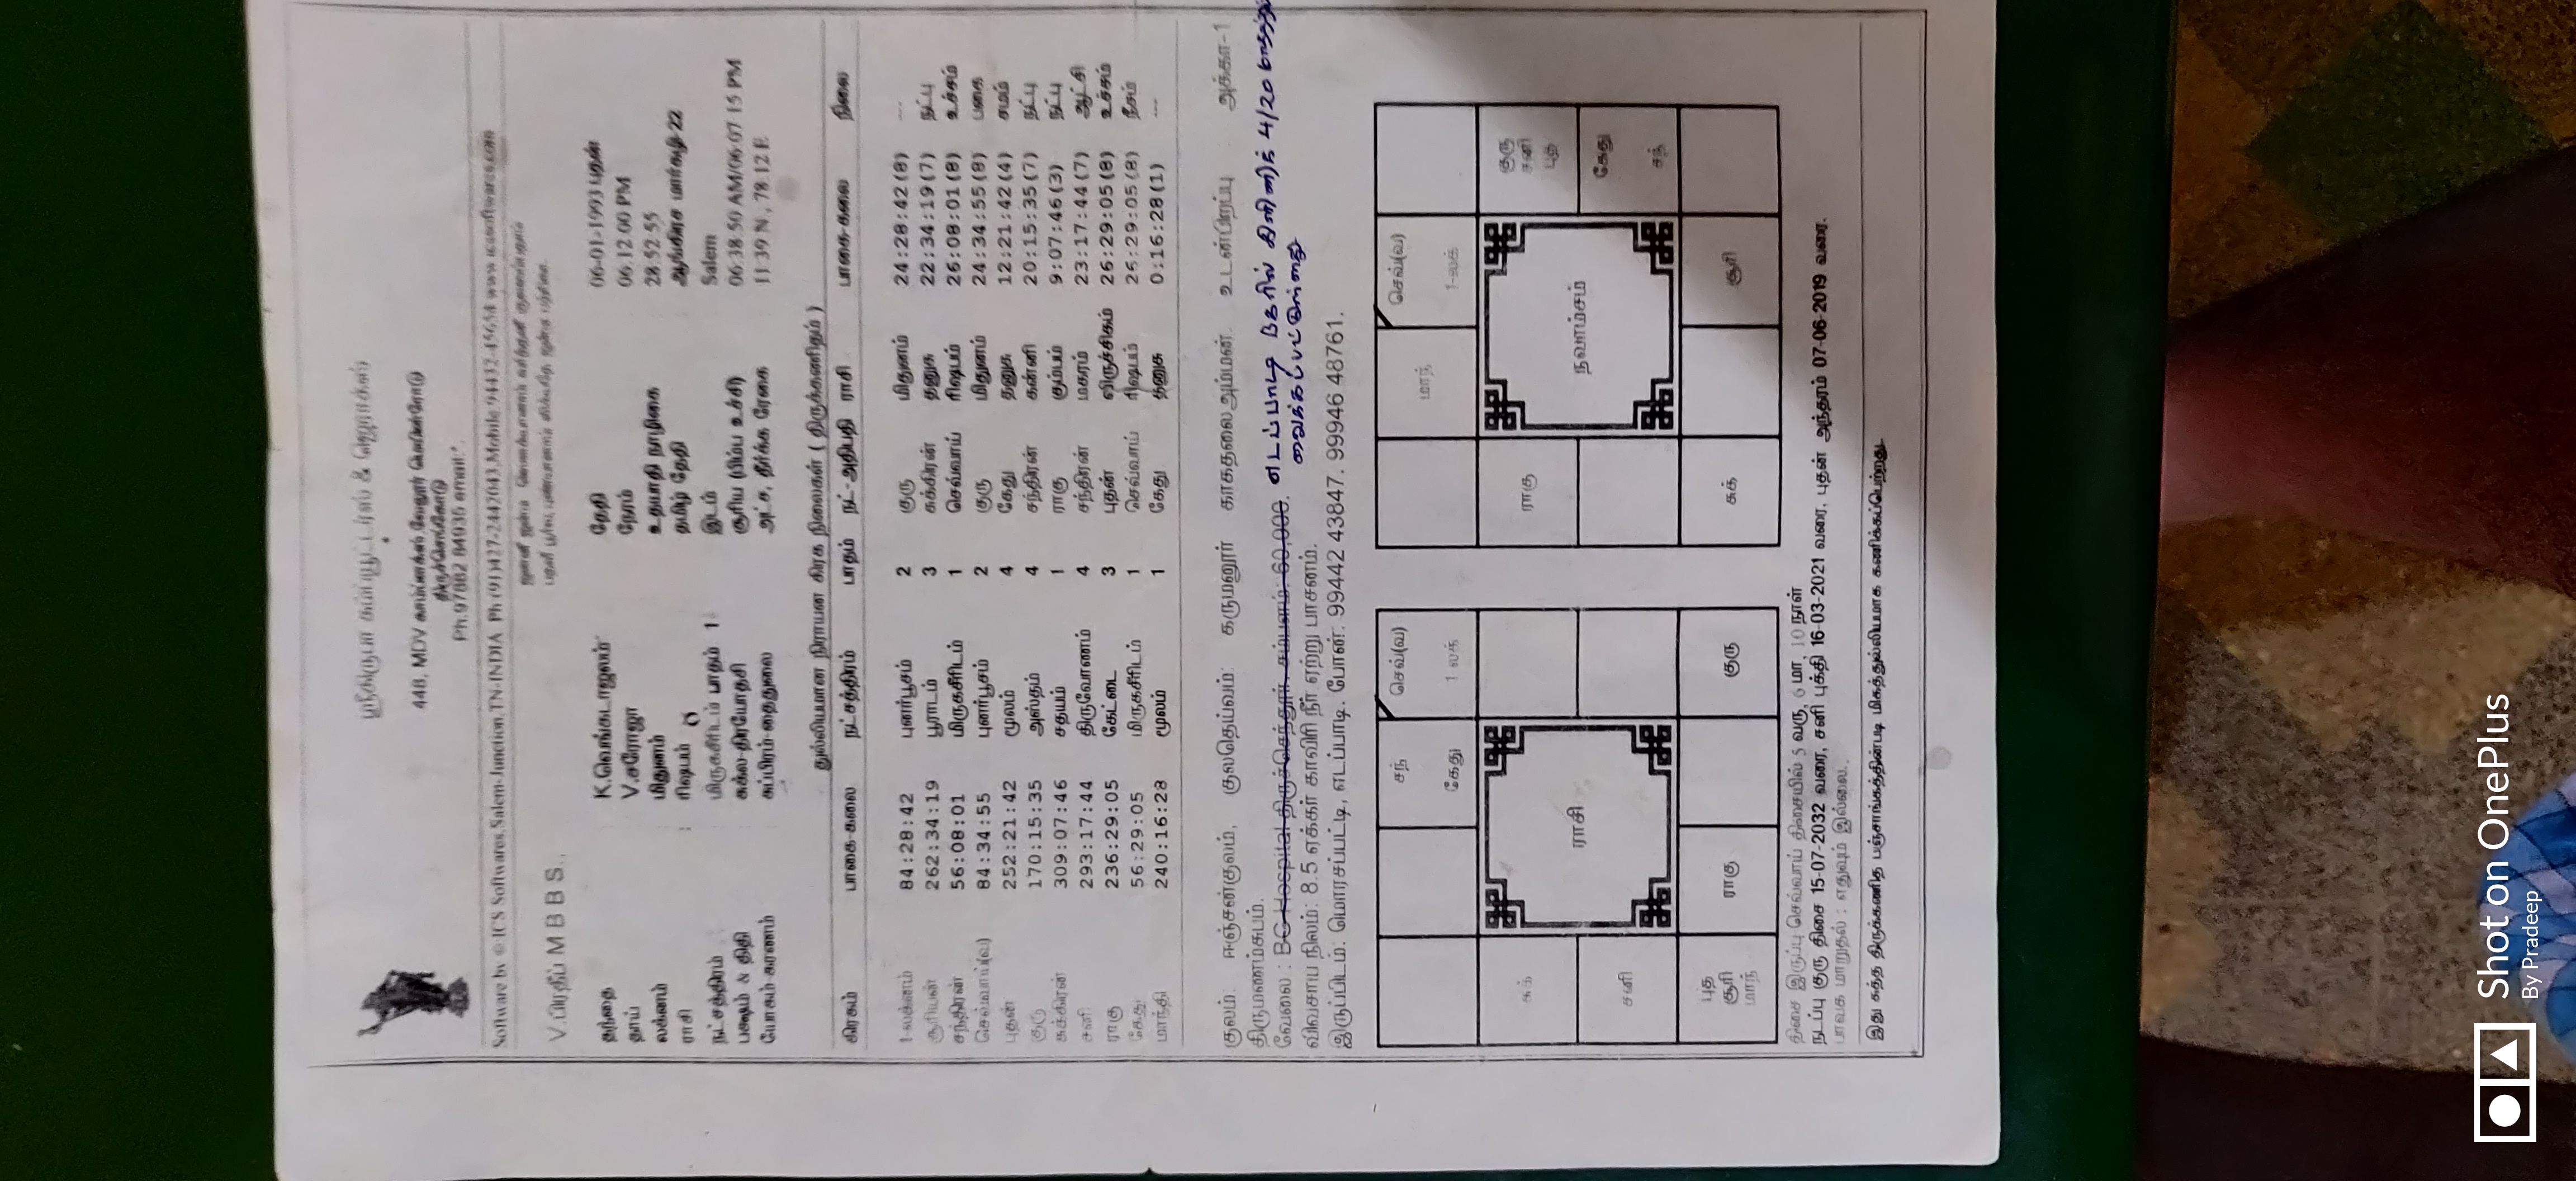 ஸ்ரீகிருபா கம்ப்யூட்டர்ஸ் & ஜெராக்ஸ்
448, MDV காம்ப்ளக்ஸ் வேலூர் மெயின்ரோடு
திருச்செங்கோடு
Ph.97882 84936 email:
Software by © ICS Softwares,Salem-Junction,TN-INDIA Ph (91)427-2442043,Mobile 94432-45654 www.icssoftwares.com
V.பிரதீப் M B B S.,
தந்தை K.வெங்கடாஜலம் தேதி 06-01-1993 புதன்
தாய் V.சரோஜா நேரம் 06.12.00 PM
லக்னம் மிதுனம் உதயாதி நாழிகை 28.52.55
ராசி : ரிஷபம் தமிழ் தேதி ஆங்கிரச மார்கழி 22
நட்சத்திரம் மிருகசீரிடம் பாதம் 1 இடம் Salem
பக்ஷம் & திதி சுக்ல-திரயோதசி சூரிய (பிம்ப உச்சி) 06.38.50 AM/06.07.15 PM
யோகம்-கரணம் சுப்பிரம்-தைதுலை அட்ச, தீர்க்க ரேகை 11.39 N , 78.12 E
துல்லியமான நிராயன கிரக நிலைகள் ( திருக்கணிதம் )
கிரகம் பாகை-கலை நட்சத்திரம் பாதம் நட்-அதிபதி ராசி பாகை-கலை நிலை
லக்னம் 84:28:42 புனர்பூசம் 2 குரு மிதுனம் 24:28:42 (8) ---
சூரியன் 262:34:19 பூராடம் 3 சுக்கிரன் தனுசு 22:34:19 (7) நட்பு
சந்திரன் 56:08:01 மிருகசீரிடம் 1 செவ்வாய் ரிஷபம் 26:08:01 (8) உச்சம்
செவ்வாய்(வ) 84:34:55 புனர்பூசம் 2 குரு மிதுனம் 24:34:55 (8) பகை
புதன் 252:21:42 மூலம் 4 கேது தனுசு 12:21:42 (4) சமம்
குரு 170:15:35 அஸ்தம் 4 சந்திரன் கன்னி 20:15:35 (7) நட்பு
சுக்கிரன் 309:07:46 சதயம் 1 ராகு கும்பம் 9:07:46 (3) நட்பு
சனி 293:17:44 திருவோணம் 4 சந்திரன் மகரம் 23:17:44 (7) ஆட்சி
ராகு 236:29:05 கேட்டை 3 புதன் விருச்சிகம் 26:29:05 (8) உச்சம்
கேது 56:29:05 மிருகசீரிடம் 1 செவ்வாய் ரிஷபம் 26:29:05 (8) நீசம்
மாந்தி 240:16:28 மூலம் 1 கேது தனுசு 0:16:28 (1) ---
குலம்: ஈஞ்சன்குலம், குலதெய்வம்: கருமனூர் காகதலை அம்மன். உடன்பிறப்பு : அக்கா-1
திருமணம்சுபம்.
வேலை : BG Hospital திருச்செந்தூர், சம்பளம்: 60,000. எடப்பாடி நகரில் கிளினிக் 4/20
வைக்கப்பட்டுள்ளது
விவசாய நிலம்: 8.5 ஏக்கர் காவிரி நீர் ஏற்று பாசனம்.
இருப்பிடம்: மொரசப்பட்டி, எடப்பாடி. போன்: 99442 43847. 99946 48761.
சந் கேது செவ்(வ) லக்
சுக் ராசி
சனி
புத சூரி மாந் ராகு குரு
மாந் செவ்(வ) லக்
ராகு நவாம்சம் குரு சனி புத
கேது சந்
சுக் சூரி
திசை இருப்பு செவ்வாய் திசையில் 5 வரு, 6 மா, 10 நாள்
நடப்பு குரு திசை 15-07-2032 வரை, சனி புக்தி 16-03-2021 வரை, புதன் அந்தரம் 07-06-2019 வரை.
பாவக மாறுதல் : எதுவும் இல்லை.
இது சுத்த திருக்கணித பஞ்சாங்கத்தின்படி மிகத்துல்லியமாக கணிக்கப்பெற்றது.
Shot on OnePlus
By Pradeep